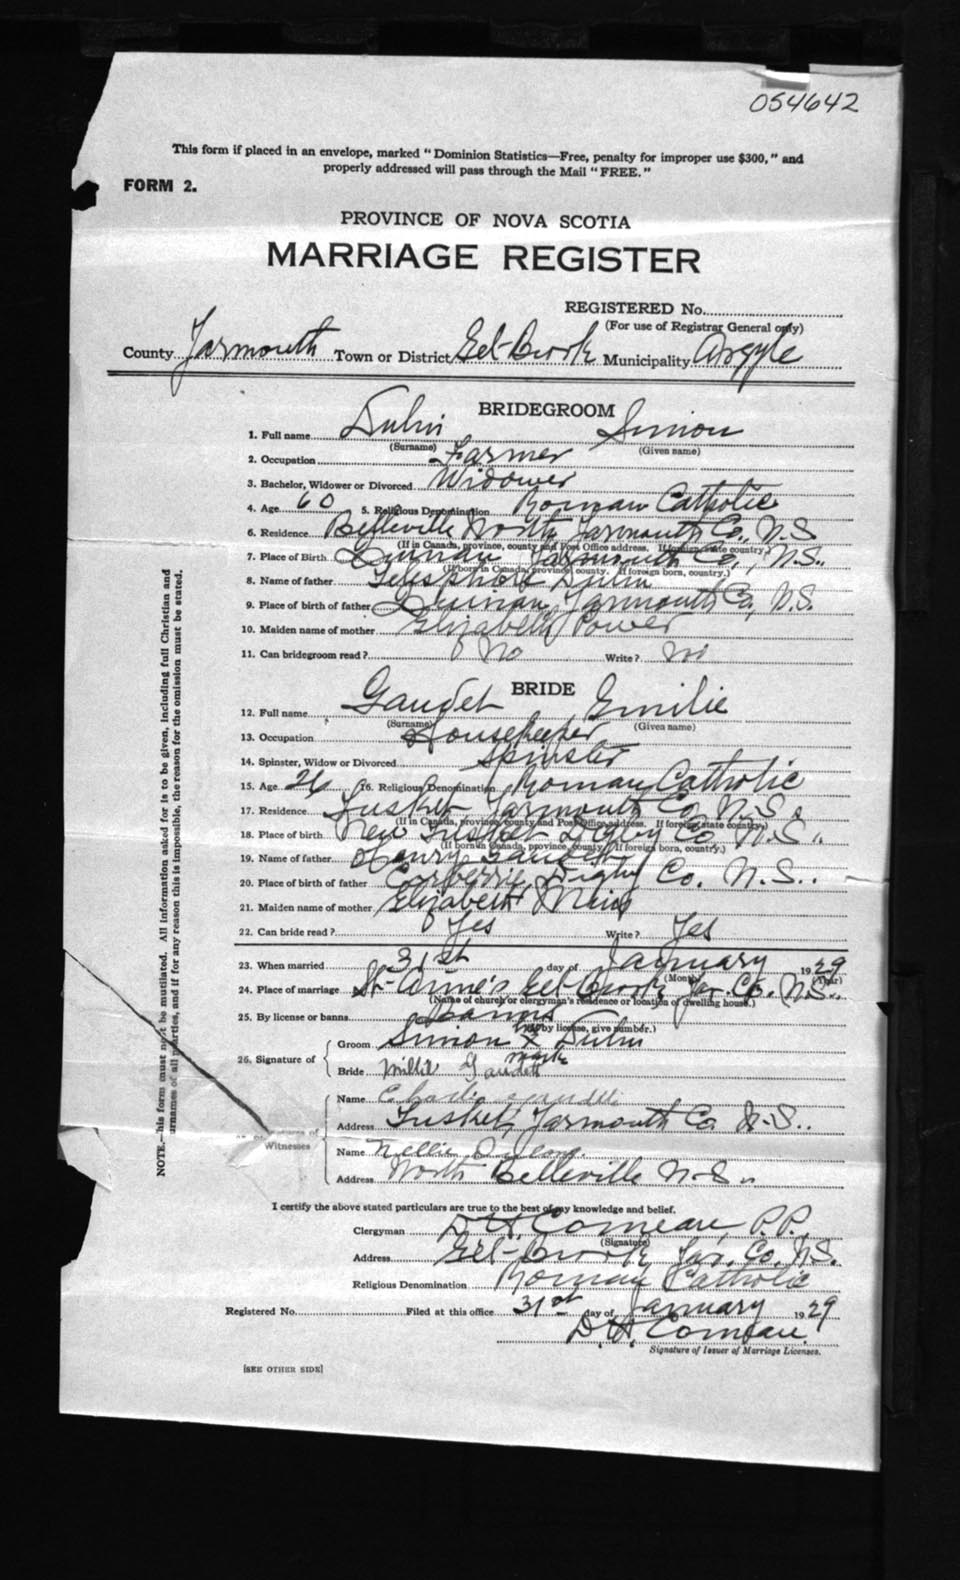 054642
This form if placed in an envelope, marked "Dominion Statistics—Free, penalty for improper use $300," and
properly addressed will pass through the Mail "FREE."
FORM 2.
PROVINCE OF NOVA SCOTIA
MARRIAGE REGISTER
REGISTERED No.
(For use of Registrar General only)
County Yarmouth Town or District Eel-Brook Municipality Argyle
BRIDEGROOM
1. Full name Dulin Simon
(Surname) (Given name)
2. Occupation Farmer
3. Bachelor, Widower or Divorced Widower
4. Age 60 5. Religious Denomination Roman Catholic
6. Residence Belleville North Yarmouth Co., N.S
(If in Canada, province, county and Post Office address. If foreign state country.)
7. Place of Birth Quinan Yarmouth Co., N.S..
(If born in Canada, province, county. If foreign born, country.)
8. Name of father Telesphore Dulin
9. Place of birth of father Quinan, Yarmouth Co, N.S.
10. Maiden name of mother Elizabeth Power
11. Can bridegroom read? No Write? No
BRIDE
12. Full name Gaudet Emilie
(Surname) (Given name)
13. Occupation Housekeeper
14. Spinster, Widow or Divorced Spinster
15. Age 26 16. Religious Denomination Roman Catholic
17. Residence Tusket Yarmouth Co N.S.
(If in Canada, province, county and Post Office address. If foreign state country.)
18. Place of birth New Tusket Digby Co N.S..
(If born in Canada, province, county. If foreign born, country.)
19. Name of father Henry Gaudet
20. Place of birth of father Corberrie Digby Co. N.S..
21. Maiden name of mother Elizabeth
22. Can bride read? Yes Write? Yes
23. When married 31st day of January 1929
(Month) (Year)
24. Place of marriage St-Anne's Eel Brook Yar. Co. N.S..
(Name of church or clergyman's residence or location of dwelling house.)
25. By license or banns Banns
(If by license, give number.)
26. Signature of
Groom Simon his X mark Dulin
Bride Millie Gaudett
Witnesses
Name Charlie
Address Tusket, Yarmouth Co N-S..
Name Nellie
Address North Belleville N-S..
I certify the above stated particulars are true to the best of my knowledge and belief.
Clergyman D.H. Comeau P.P.
(Signature)
Address Eel-Brook Yar. Co. N.S.
Religious Denomination Roman Catholic
Registered No. Filed at this office 31st day of January 1929
D.H. Comeau.
Signature of Issuer of Marriage Licenses.
[SEE OTHER SIDE]
NOTE.—This form must not be mutilated. All information asked for is to be given, including full Christian and
surnames of all parties, and if for any reason this is impossible, the reason for the omission must be stated.